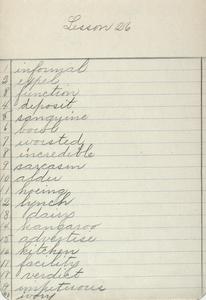 Lesson 26
1 informal
2 expel
3 function
4 deposit
5 sanguine
6 bowl
7 worsted
8 incredible
9 sarcasm
10 adder
11 hoeing
12 lynch
13 dairy
14 kangaroo
15 advertise
16 kitchen
17 facility
18 verdict
19 impetuous